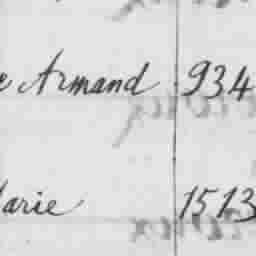 e Armand 934
Marie 1513